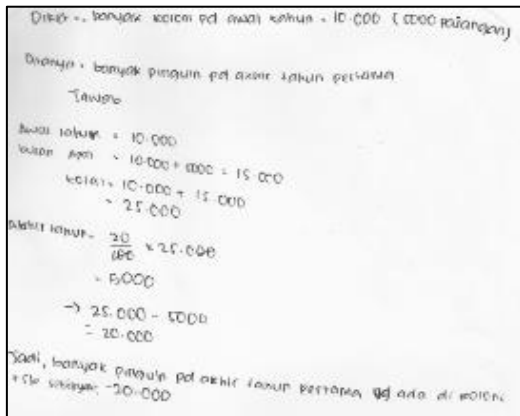 banyak koloni pd awal tahun = 10.000 (5000 pasangan)
Ditanya = banyak pinguin pd akhir tahun pertama
Jawab
Awal tahun = 10.000
bulan April = 10.000 + 5000 = 15.000
total = 10.000 + 15.000
= 25.000
akhir tahun = 20/100 × 25.000
= 5000
→ 25.000 - 5000
= 20.000
Jadi, banyak pinguin pd akhir tahun pertama yg ada di koloni
20.000